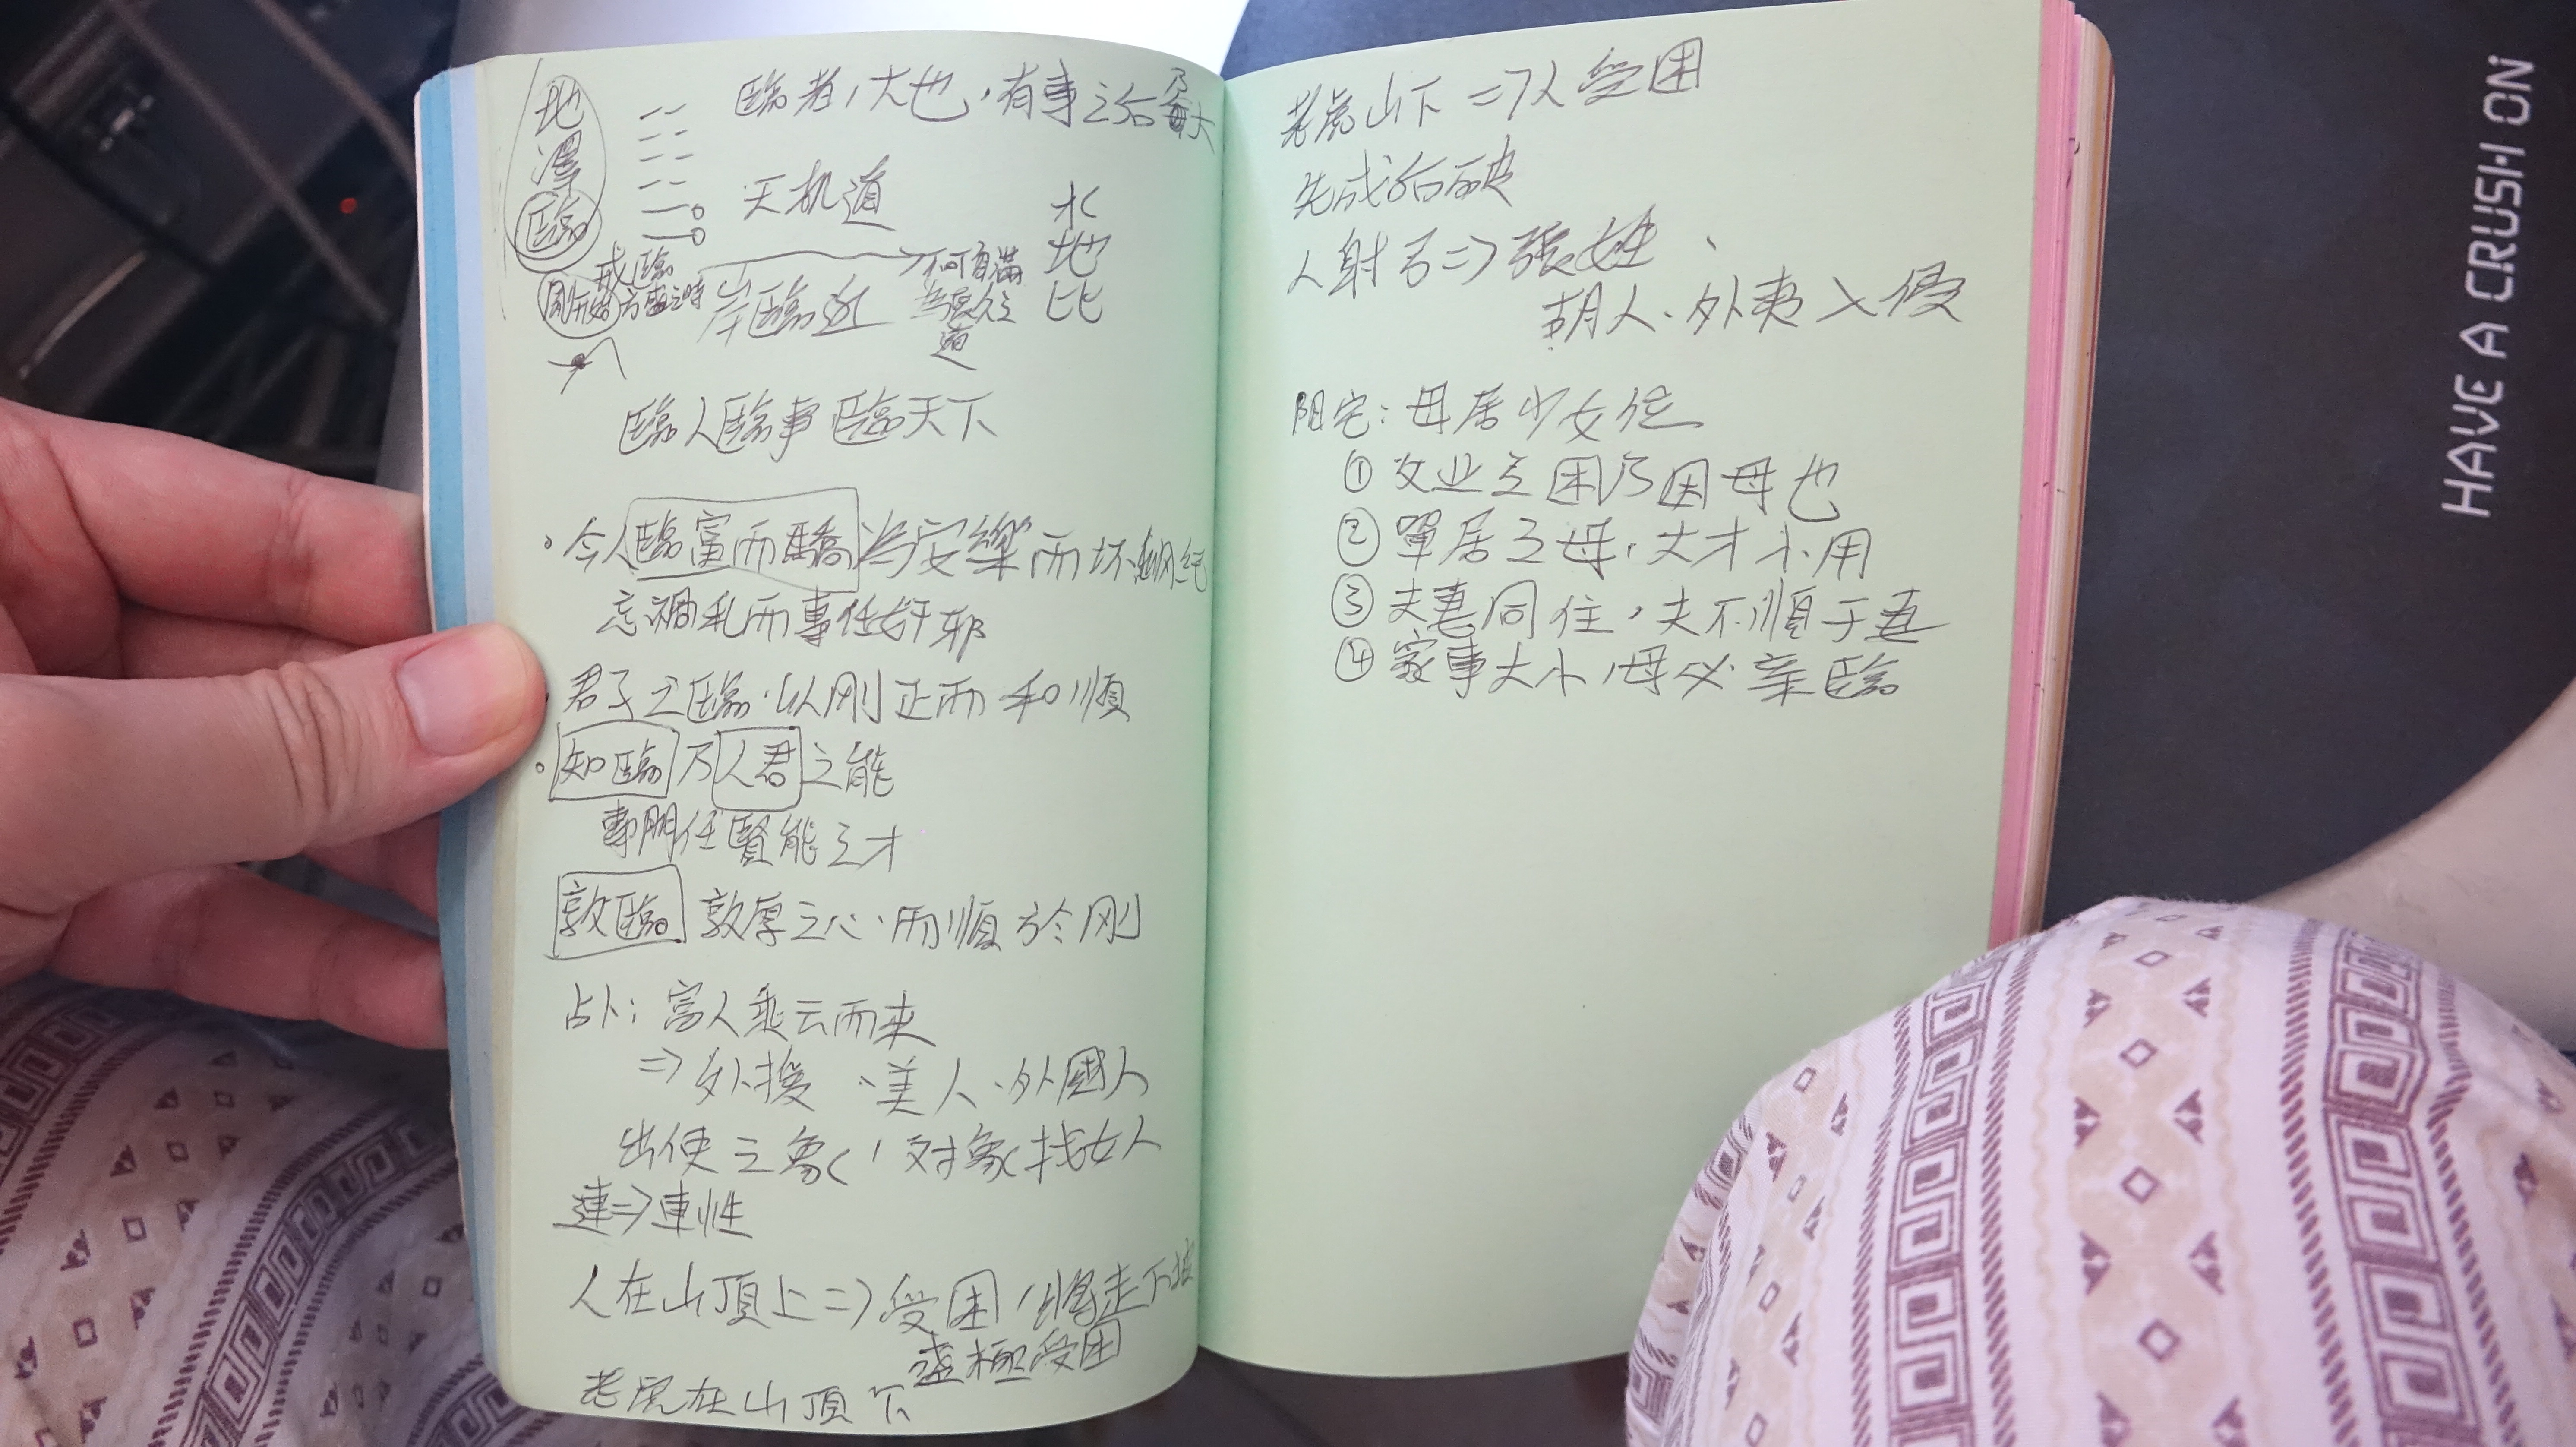 地澤臨
臨者,大也,有事之后乃最大
天机道
水地比
戒臨
方盛之時
岸臨近
何有滿
為長久之道
臨人臨事臨天下
今人臨富而驕 为安樂而坏綱纪
忘禍乱而專任奸邪
君子之臨,以刚正而和順
知臨乃人君之能
專門任賢能之才
敦臨 敦厚之心,而順於刚
占卜:富人乘云而来
=> 外援、美人、外國人
出使之象,对象找女人
連=>連性
人在山頂上=>受困,將走下坡
盛極受困
老虎在山頂下
老虎山下=>人受困
先成后破
人射弓=>張姓、
胡人、外夷入侵
阳宅:母居少女位
① 女业主困乃因母也
② 單居之母,丈才不用
③ 夫妻同住,夫不順于妻
④ 家事大小,母必亲臨
HAVE A CRUSH ON